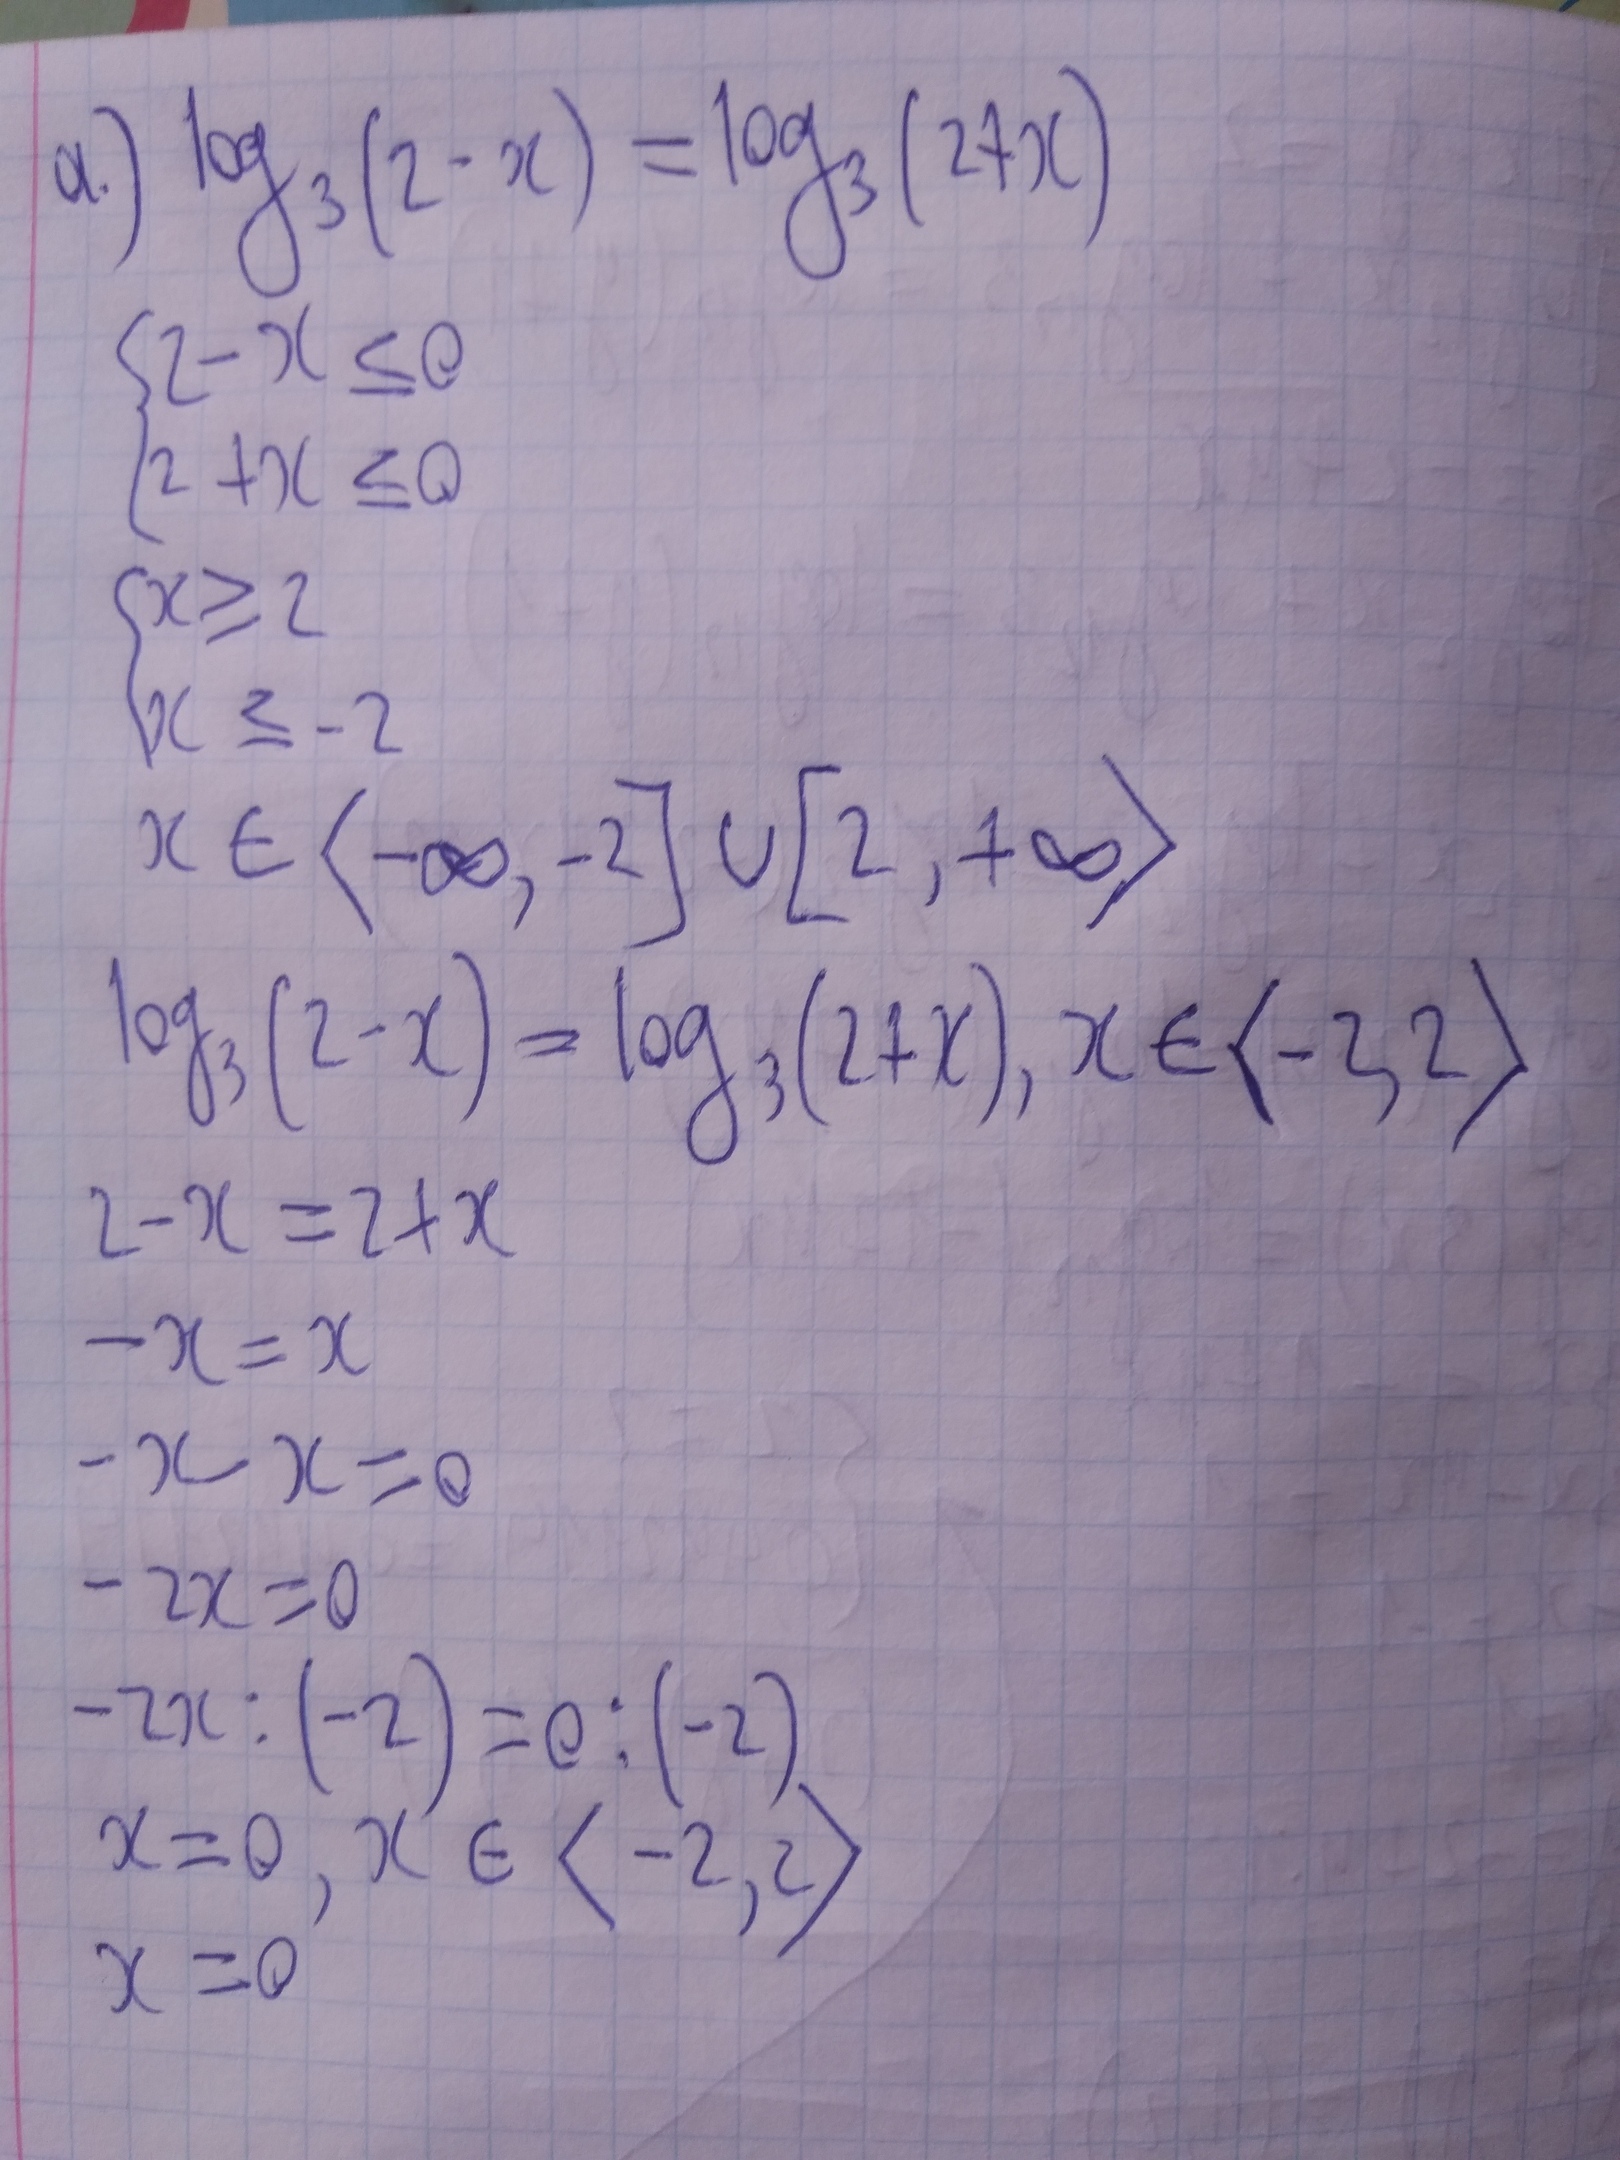 a.) log₃(2-x) = log₃(2+x)
{2-x ≤ 0
{2+x ≤ 0
{x ≥ 2
{x ≤ -2
x ∈ ⟨-∞, -2] ∪ [2, +∞⟩
log₃(2-x) = log₃(2+x), x ∈ ⟨-2, 2⟩
2-x = 2+x
-x = x
-x-x = 0
-2x = 0
-2x : (-2) = 0 : (-2)
x = 0, x ∈ ⟨-2, 2⟩
x = 0